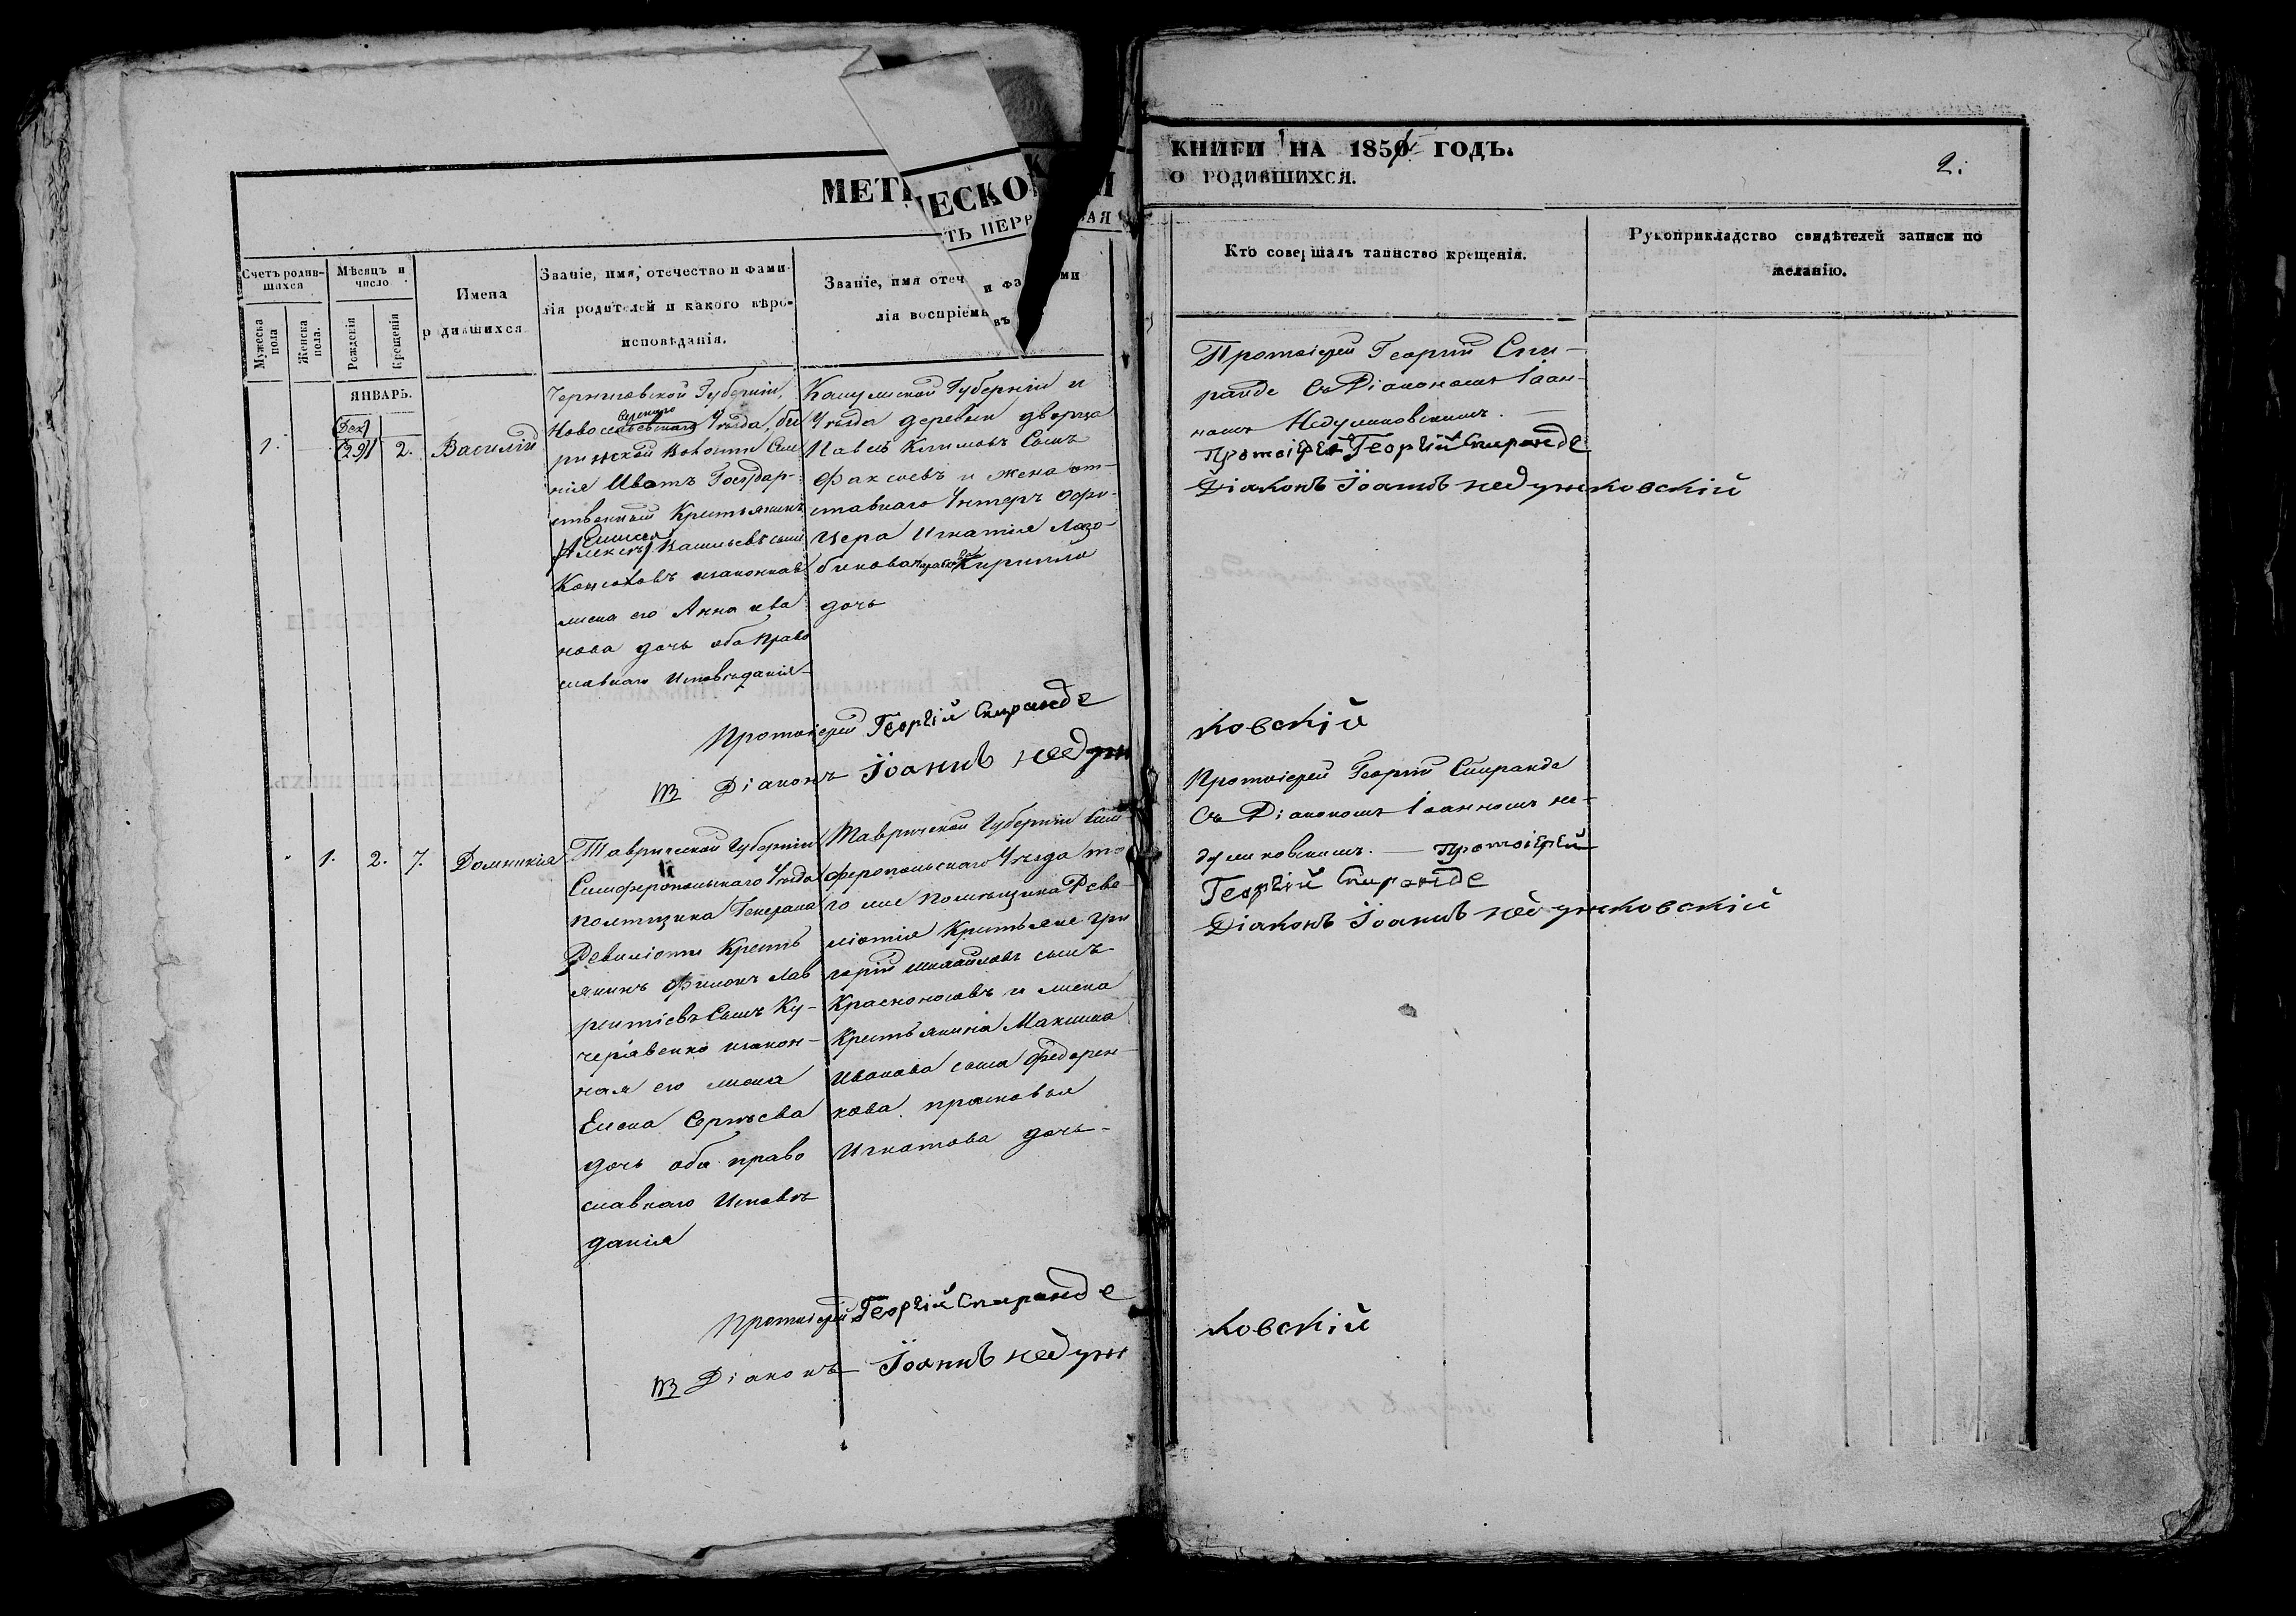 МЕТРИЧЕСКОЙ
ЧАСТЬ ПЕРВАЯ
КНИГИ НА 1851 ГОДЪ.
О РОДИВШИХСЯ.
2.
Счетъ родив-
шихся
Мужеска пола
Женска пола.
Мѣсяцъ и
число
Рожденія
Крещенія
Имена
родившихся
Званіе, имя, отечество и фами-
лія родителей и какого вѣро-
исповѣданія.
Званіе, имя отеч и фами
лія воспріемн въ
Кто совершалъ таинство крещенія.
Рукоприкладство свидѣтелей записи по
желанію.
ЯНВАРЬ.
Дек
1.
29
2.
Василій
Черниговской Губерніи,
Уѣзда,
Иванъ Государ-
ственный Крестьянинъ
Васильевъ сынъ
законная
жена его Анна Ива
нова дочь оба право
славнаго Исповѣданія
Губерніи и
Уѣзда деревни дворца
Павелъ Климовъ Сынъ
и жена от-
ставнаго Унтеръ Офи-
цера Игнатія
Кирилло
дочь
Протоіерей Георгій Спи-
ранде Съ Діакономъ Іоан-
номъ Недумковскимъ.
Протоіерей Георгій Спиранде
Діаконъ Іоаннъ Недумковскій
Протоіерей Георгій Спиранде
Діаконъ Іоаннъ Недумковскій
1.
2.
7.
Домникія
Таврической Губерніи
Симферопольскаго Уѣзда
помѣщика Генерала
Ревиліоти Кресть
янинъ Филипъ Лав
рентіевъ Сынъ Ку-
черявенко законная
его жена
Елена Сергѣева
дочь оба право
славнаго Исповѣ
данія
Таврической Губерніи Сим
феропольскаго Уѣзда то
го же Помѣщика Реве-
ліотія Крестьяне Гри
горій Михайловъ сынъ
Красноносовъ и жена
Крестьянина Максима
Иванова сына Федорен-
кова Прасковья
Игнатова дочь-
Протоіерей Георгій Спиранде
Съ Діакономъ Іоанномъ Не-
думковскимъ. — Протоіерей
Георгій Спиранде
Діаконъ Іоаннъ Недумковскій
Протоіерей Георгій Спиранде
Діаконъ Іоаннъ Недумковскій